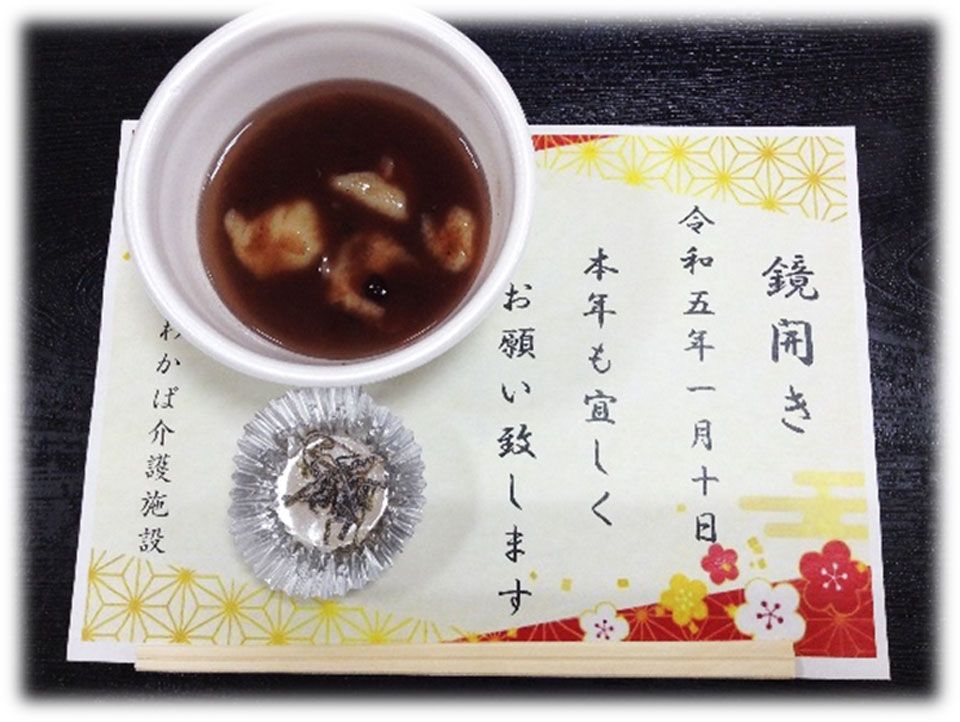 鏡開き
令和五年一月十日
本年も宜しく
お願い致します
わかば介護施設